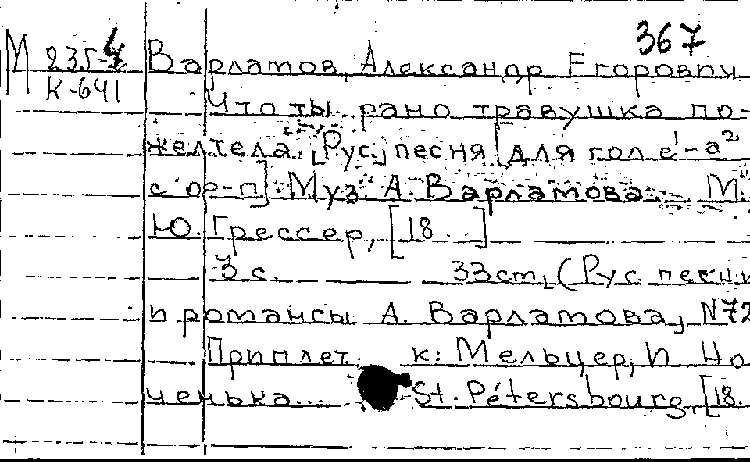 367
М 235-4 Варламов, Александр Егорович
К-641 Что ты рано травушка по-
желтела. [Рус.] песня [для гол. e¹-a²
с ф-п]. Муз. А. Варламова. М.
Ю. Грессер, [18...]
3 с. 33 см, (Рус песни
и романсы А. Варламова, N72
Приплет. к: Мельцер, И Но
ченька... St. Pétersbourg, [18.